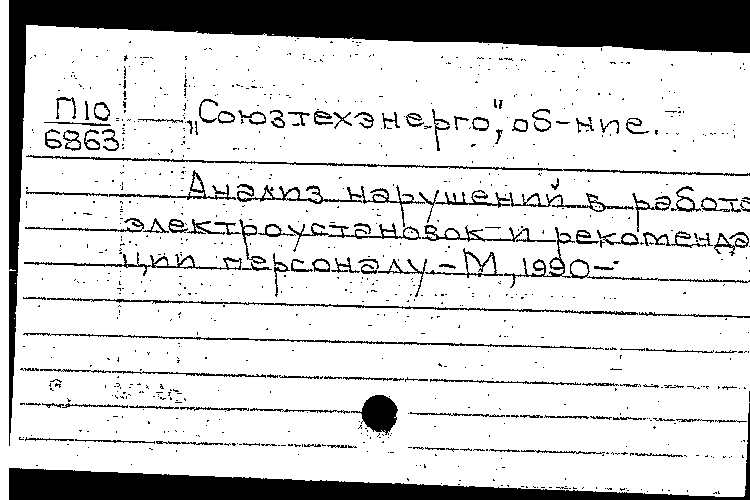 П10
6863
„Союзтехэнерго“, об-ние.
Анализ нарушений в работе
электроустановок и рекоменда
ции персоналу. – М., 1990–